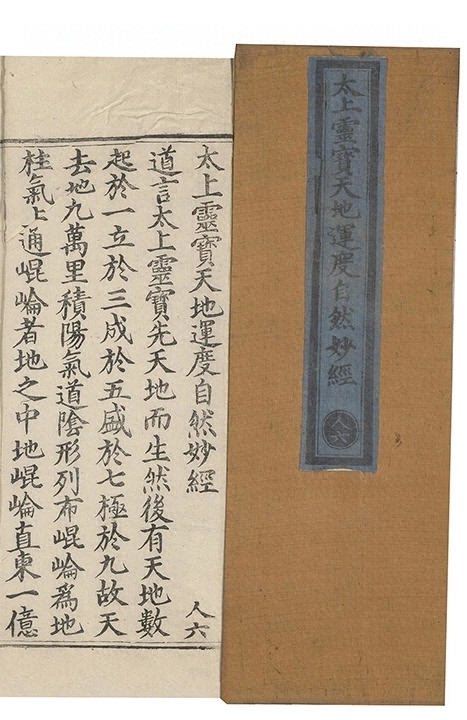 太上靈寶天地運度自然妙經
人六
太上靈寶天地運度自然妙經
人六
道言太上靈寶先天地而生然後有天地數
起於一立於三成於五盛於七極於九故天
去地九萬里積陽氣道陰形列布崐崙爲地
柱氣上通崐崙者地之中地崐崙直東一億